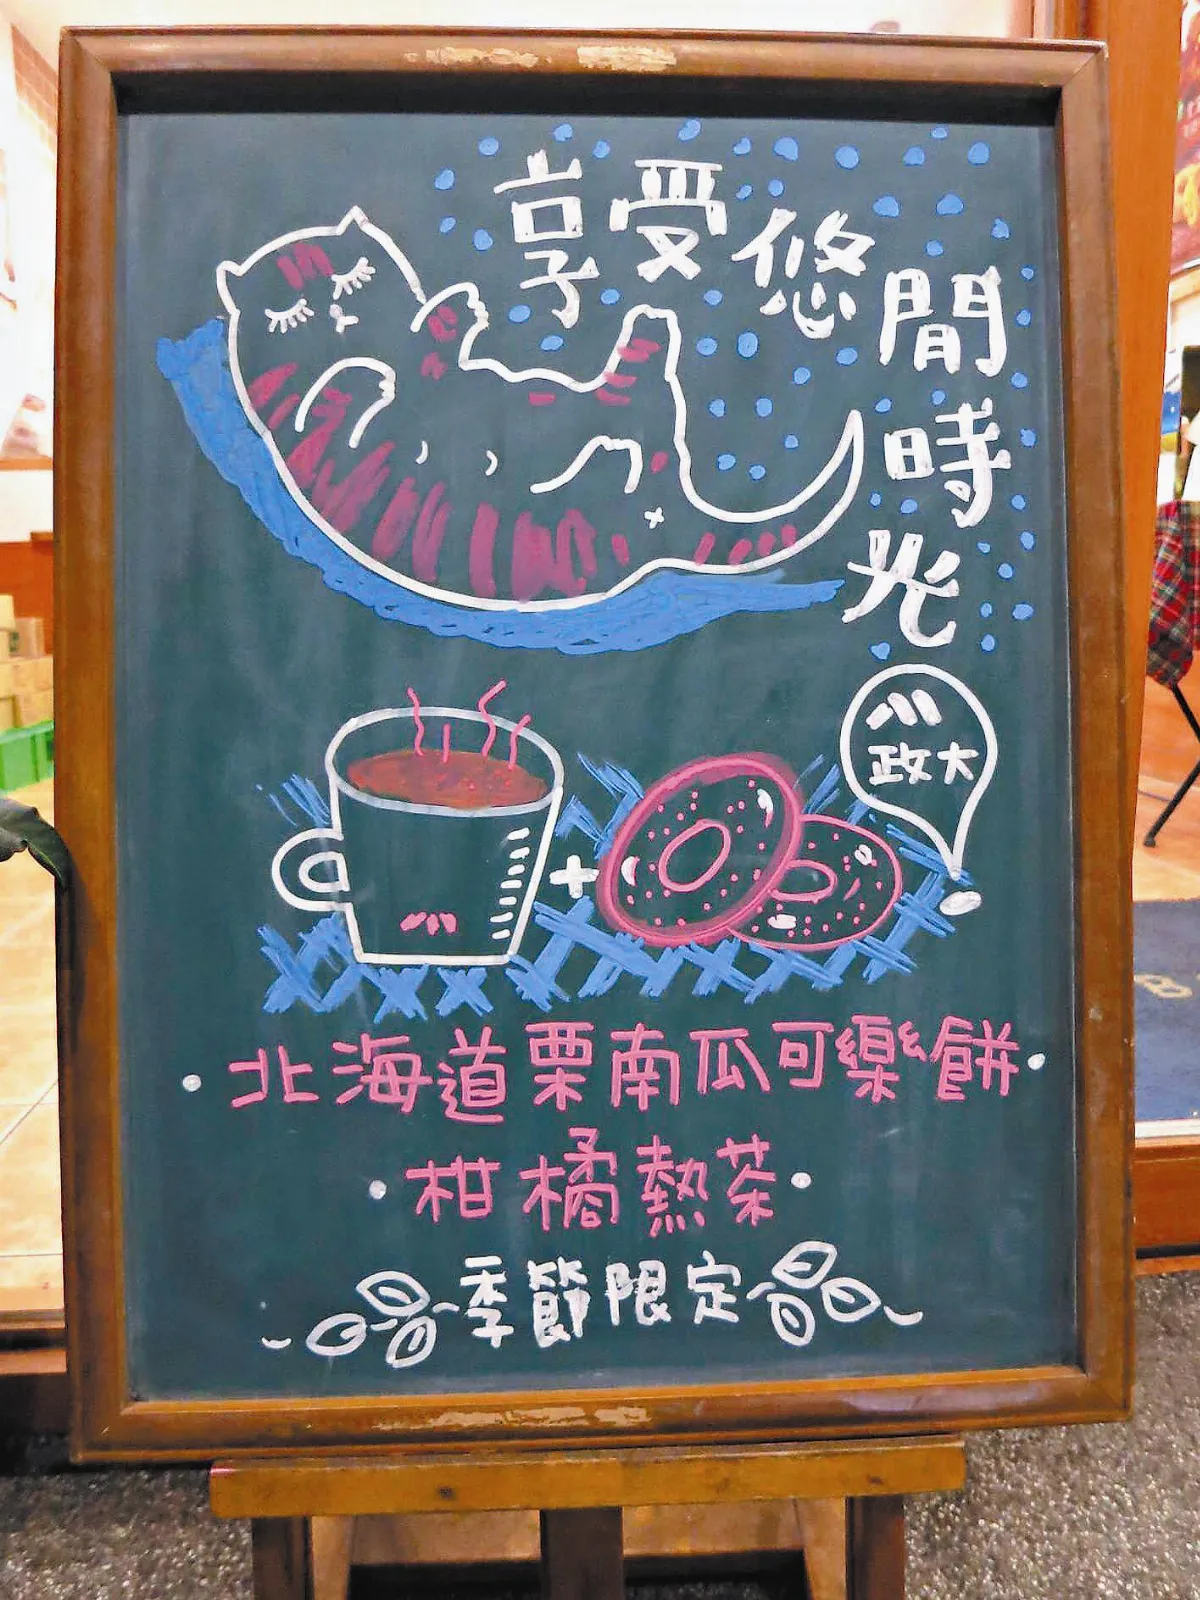 享受悠閒時光
政大
北海道栗南瓜可樂餅
柑橘熱茶
季節限定